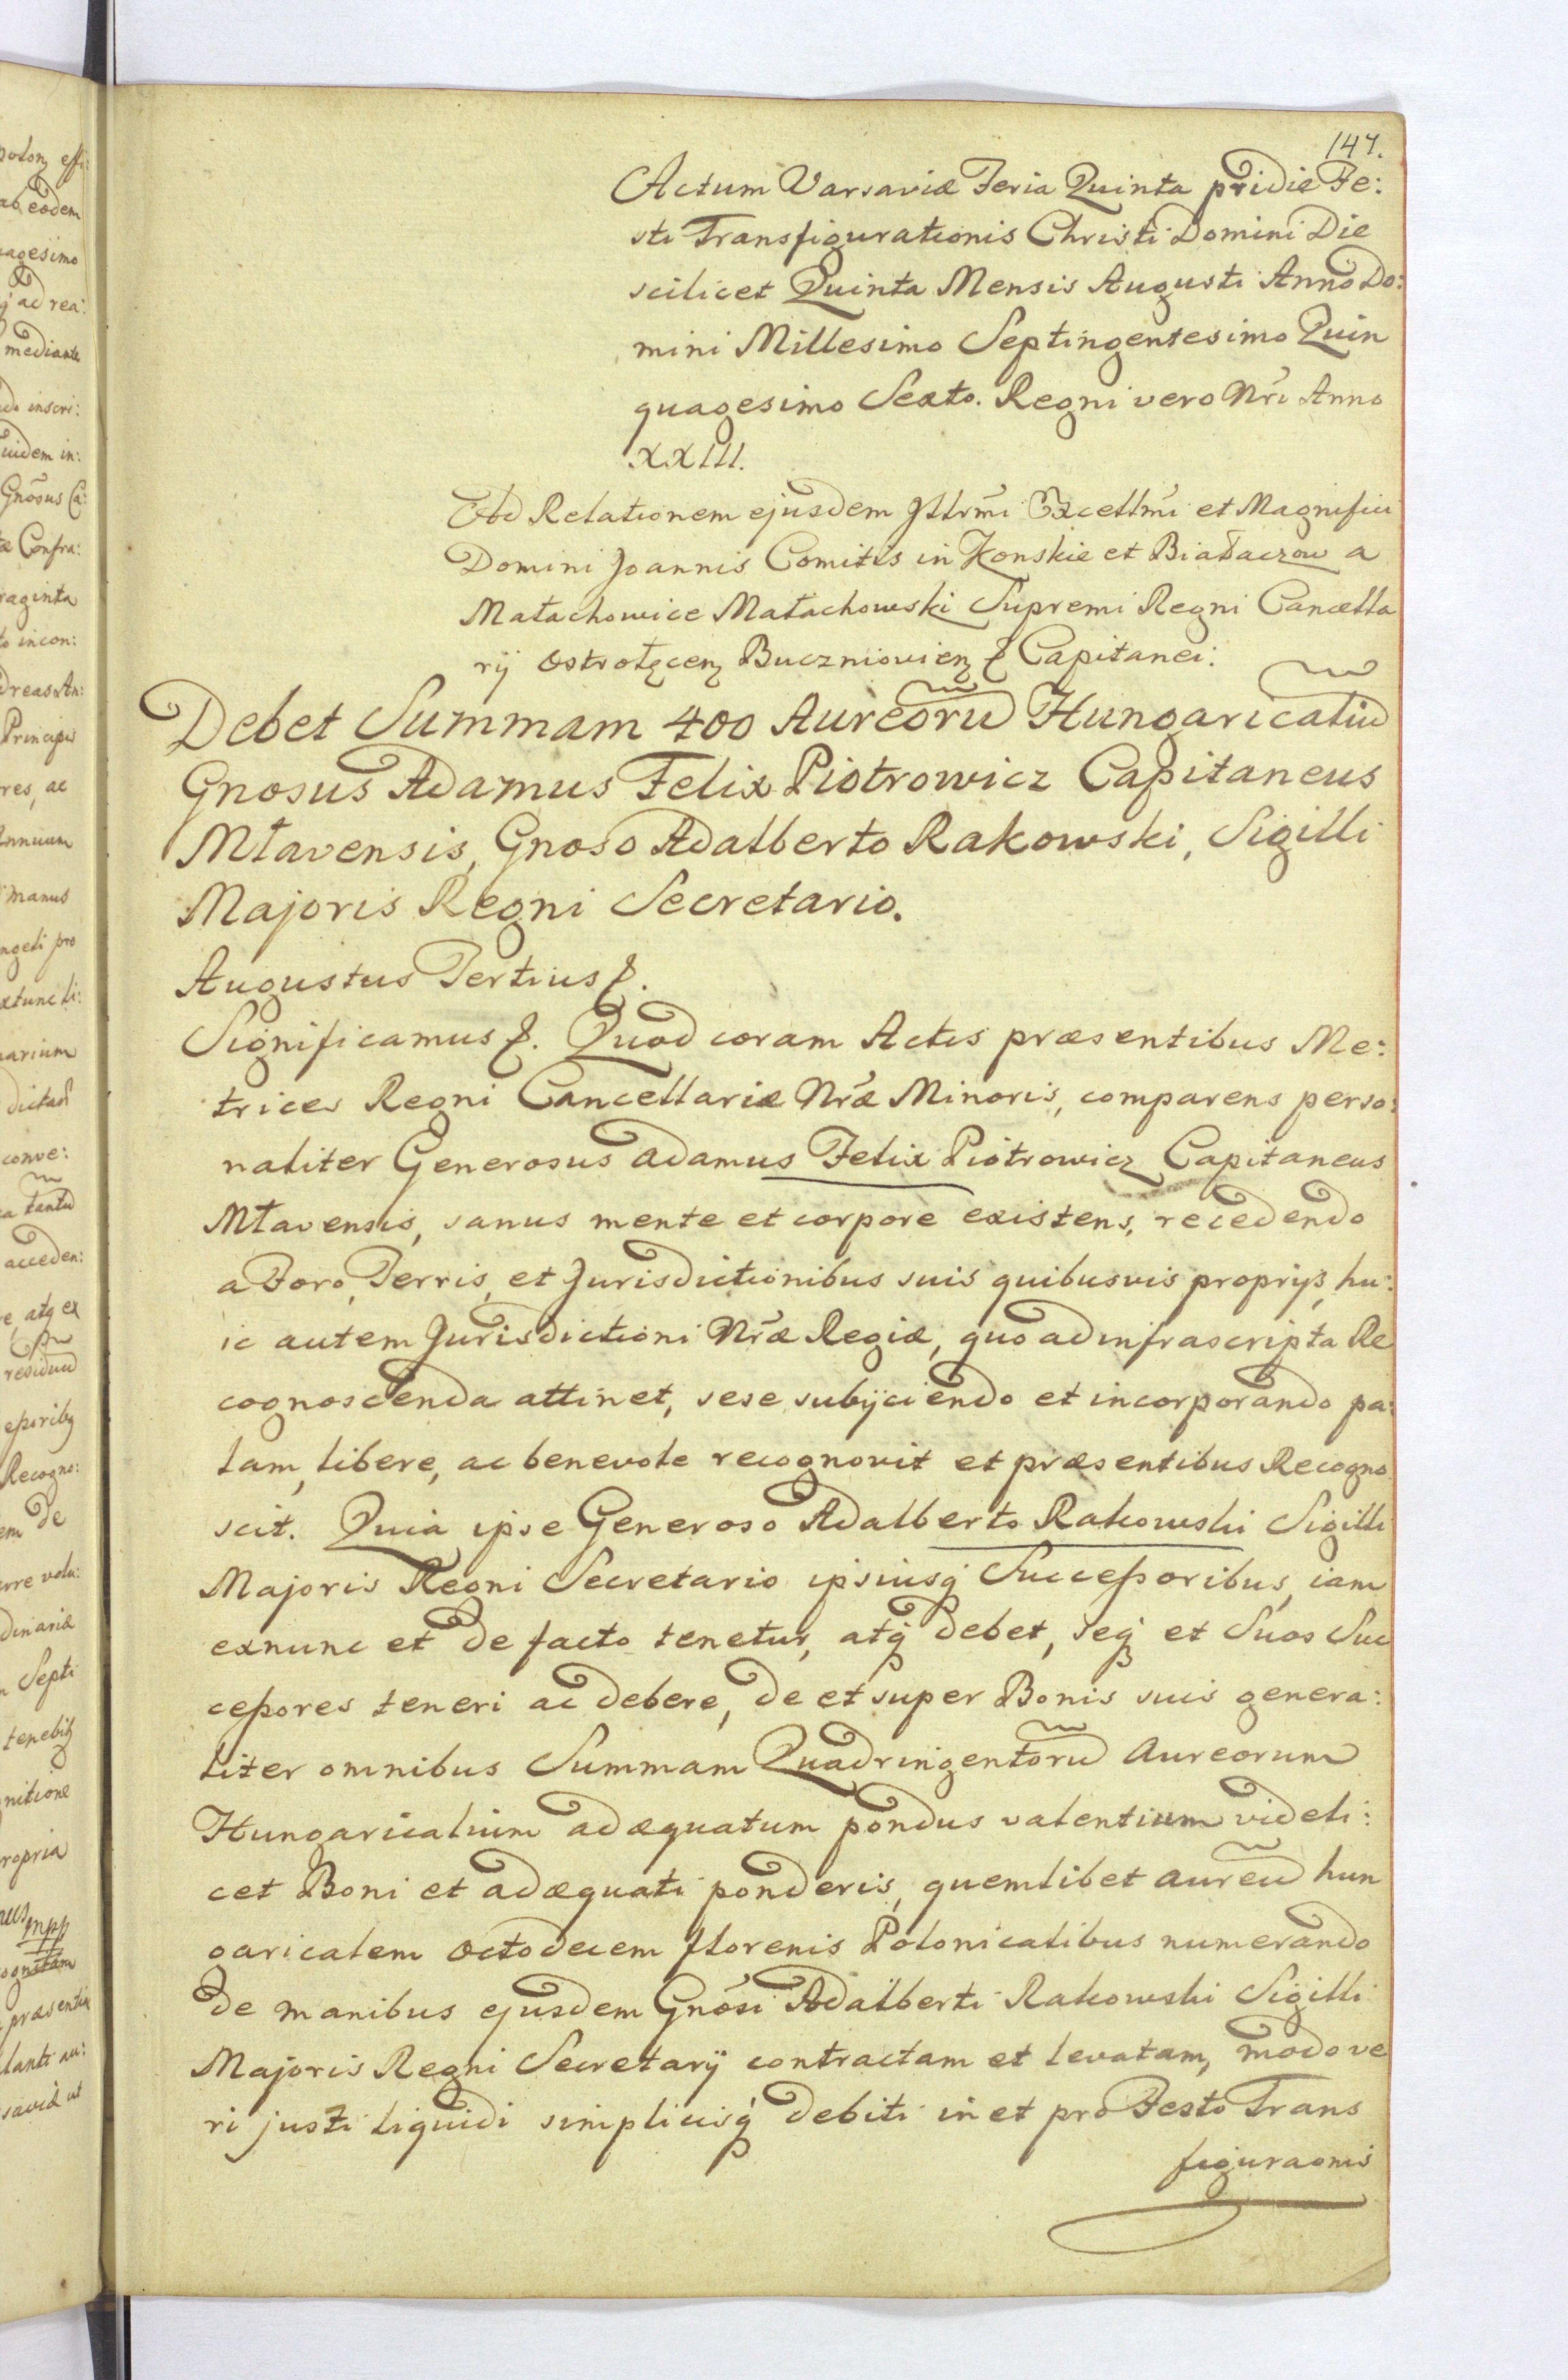 147.
Actum Varsaviæ Feria Quinta pridie Fe:
sti Transfigurationis Christi Domini Die
scilicet Quinta Mensis Augusti Anno Do:
mini Millesimo Septingentesimo Quin
quagesimo Sexto. Regni vero Nrī Anno
XXIII.
Ad Relationem ejusdem Jllrmī Excellmī et Magnifici
Domini Joannis Comitis in Konskie et Białaczow a
Małachowice Małachowski Supremi Regni Cancella
rij Ostrołęcen Buczniovien Capitanei:
Debet Summam 400 Aureorū Hungaricaliū
Gnosus Adamus Felix Piotrowicz Capitaneus
Młavensis, Gnoso Adalberto Rakowski, Sigilli
Majoris Regni Secretario.
Augustus Tertius
Significamus Quod coram Actis præsentibus Me:
trices Regni Cancellariæ Nrǣ Minoris, comparens perso:
naliter Generosus Adamus Felix Piotrowicz Capitaneus
Młavensis, sanus mente et corpore existens, recedendo
a Foro, Terris, et Jurisdictionibus suis quibusvis proprijs, hu:
ic autem Jurisdictioni Nrǣ Regiæ, quo ad infrascripta Re
cognoscenda attinet, sese subijciendo et incorporando pa:
lam, libere, ac benevole recognovit et præsentibus Recogno
scit. Quia ipse Generoso Adalberto Rakowski Sigilli
Majoris Regni Secretario ipsiusq̨ Successoribus, iam
exnunc et de facto tenetur, atq̨ debet, seq̨ et Suos Suc
cessores teneri ac debere, de et super Bonis suis genera:
liter omnibus Summam Quadringentorū Aureorum
Hungaricalium adæquatum pondus valentium videli:
cet Boni et adæquati ponderis, quemlibet aureū hun
garicalem octodecem florenis Polonicalibus numerando
de manibus ejusdem Gnōsi Adalberti Rakowski Sigilli
Majoris Regni Secretarij contractam et levatam, modo ve
ri justi liquidi simplicisq̨ debiti in et pro Festo Trans
figuraonis